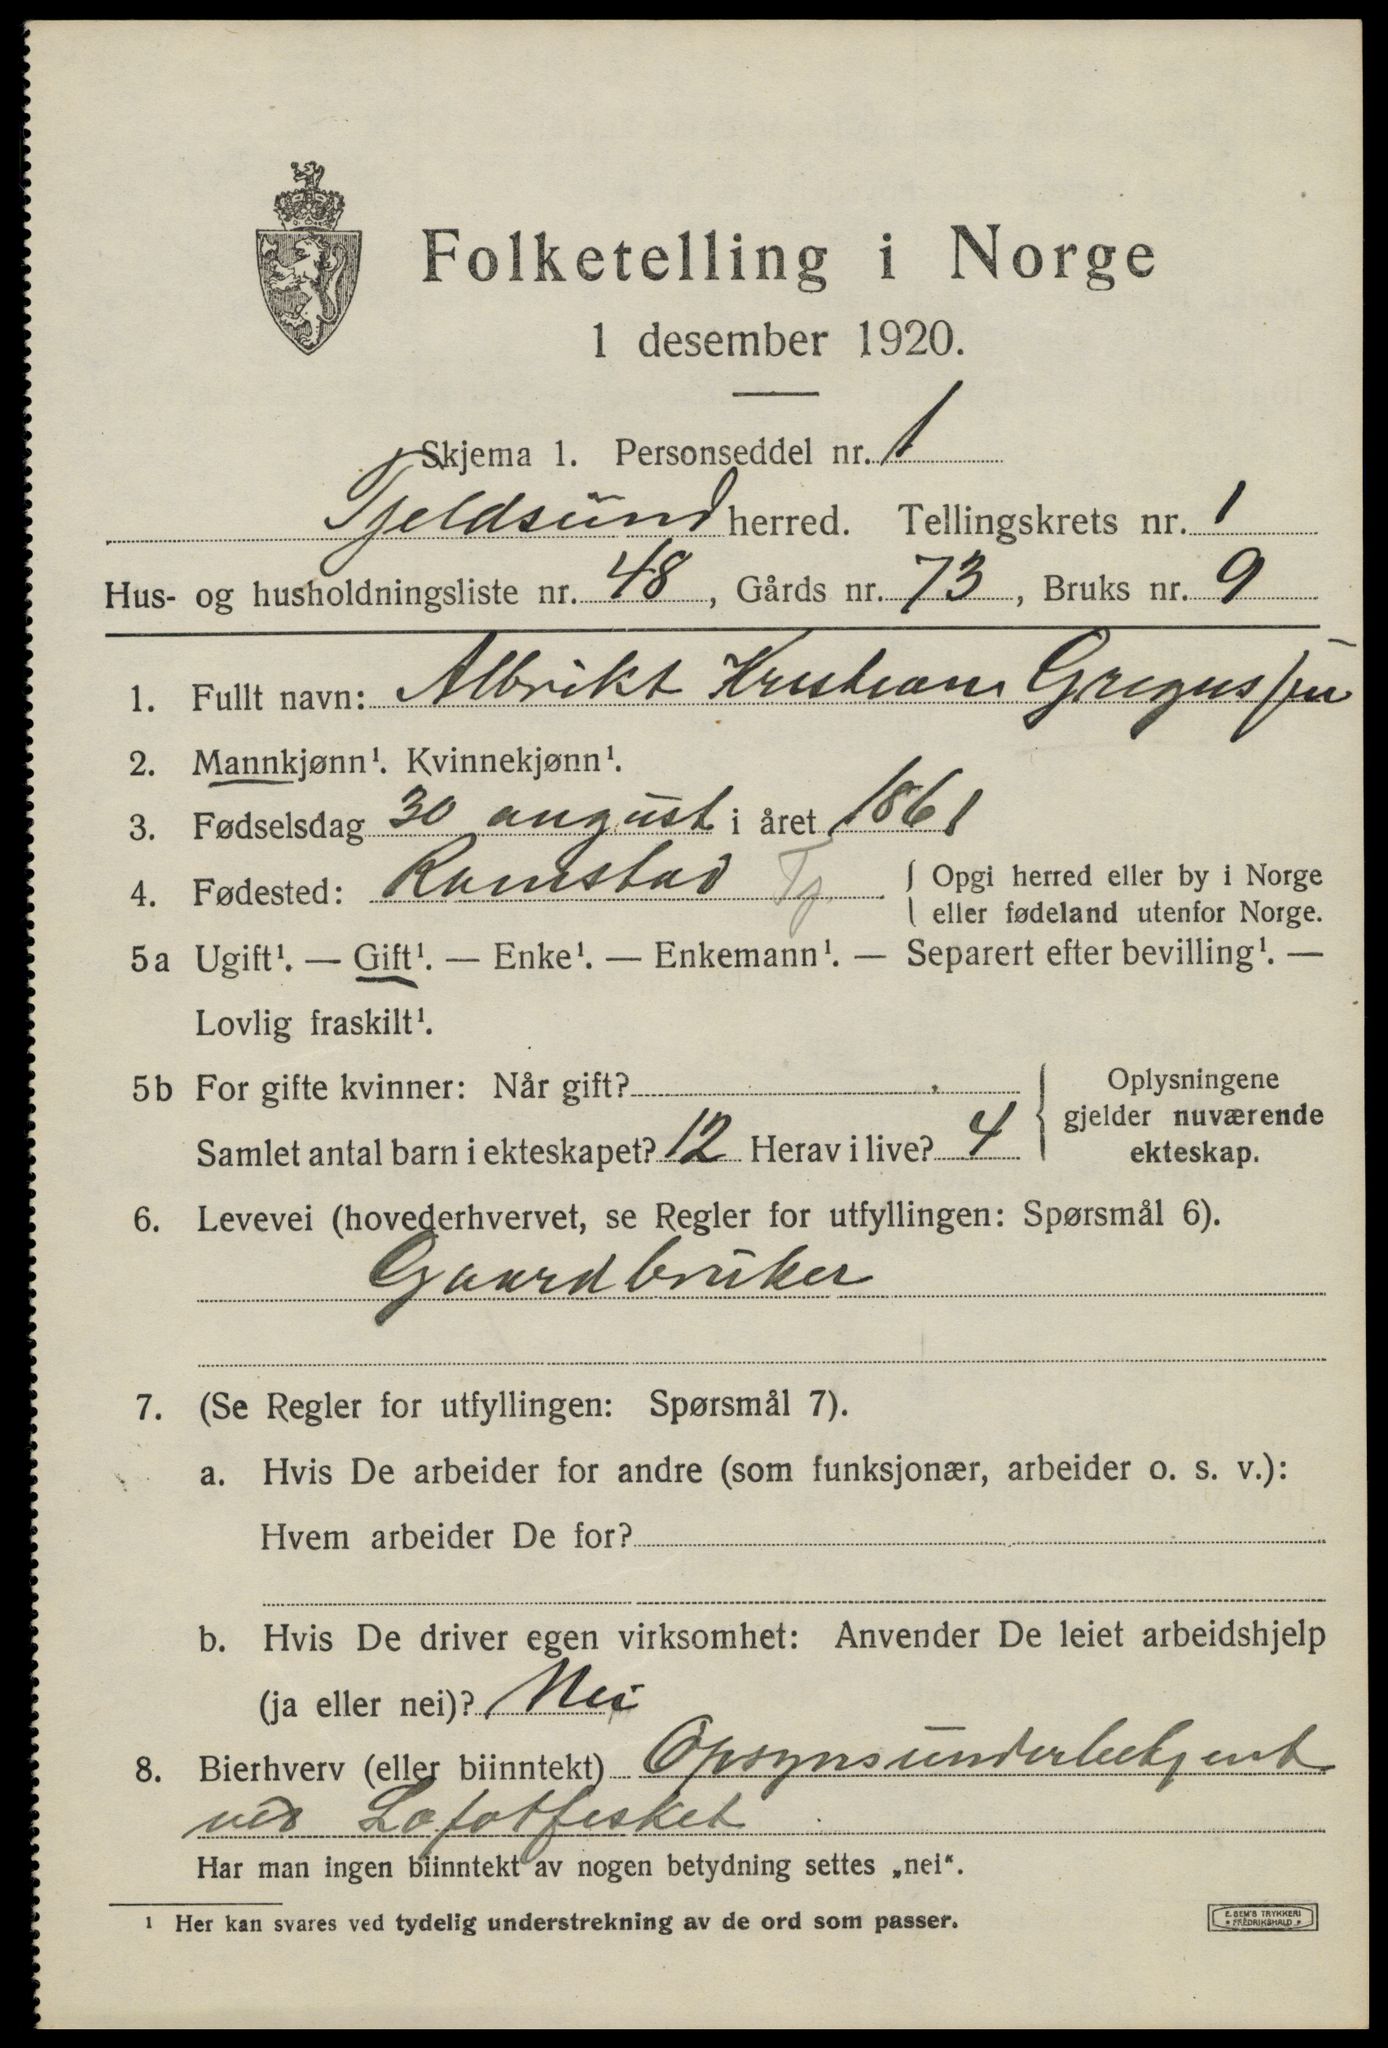 Folketelling i Norge
1 desember 1920.
Skjema 1. Personseddel nr. 1
Tjeldsund herred. Tellingskrets nr. 1
Hus- og husholdningsliste nr. 48, Gårds nr. 73, Bruks nr. 9
1. Fullt navn: Albrikt Kristian Gregussen
2. Mannkjønn¹. Kvinnekjønn¹.
3. Fødselsdag 30 august i året 1861
4. Fødested: Ramstad Tj. { Opgi herred eller by i Norge
eller fødeland utenfor Norge.
5a Ugift¹. — Gift¹. — Enke¹. — Enkemann¹. — Separert efter bevilling¹. —
Lovlig fraskilt¹.
5b For gifte kvinner: Når gift?
Samlet antal barn i ekteskapet? 12 Herav i live? 4
{ Oplysningene
gjelder nuværende
ekteskap.
6. Levevei (hovederhvervet, se Regler for utfyllingen: Spørsmål 6).
Gaardbruker
7. (Se Regler for utfyllingen: Spørsmål 7).
a. Hvis De arbeider for andre (som funksjonær, arbeider o. s. v.):
Hvem arbeider De for?
b. Hvis De driver egen virksomhet: Anvender De leiet arbeidshjelp
(ja eller nei)? Nei
8. Bierhverv (eller biinntekt) Opsynsunderbetjent
ved Lofotfisket
Har man ingen biinntekt av nogen betydning settes „nei“.
¹ Her kan svares ved tydelig understrekning av de ord som passer.
E. SEM'S TRYKKERI
* FREDRIKSHALD *